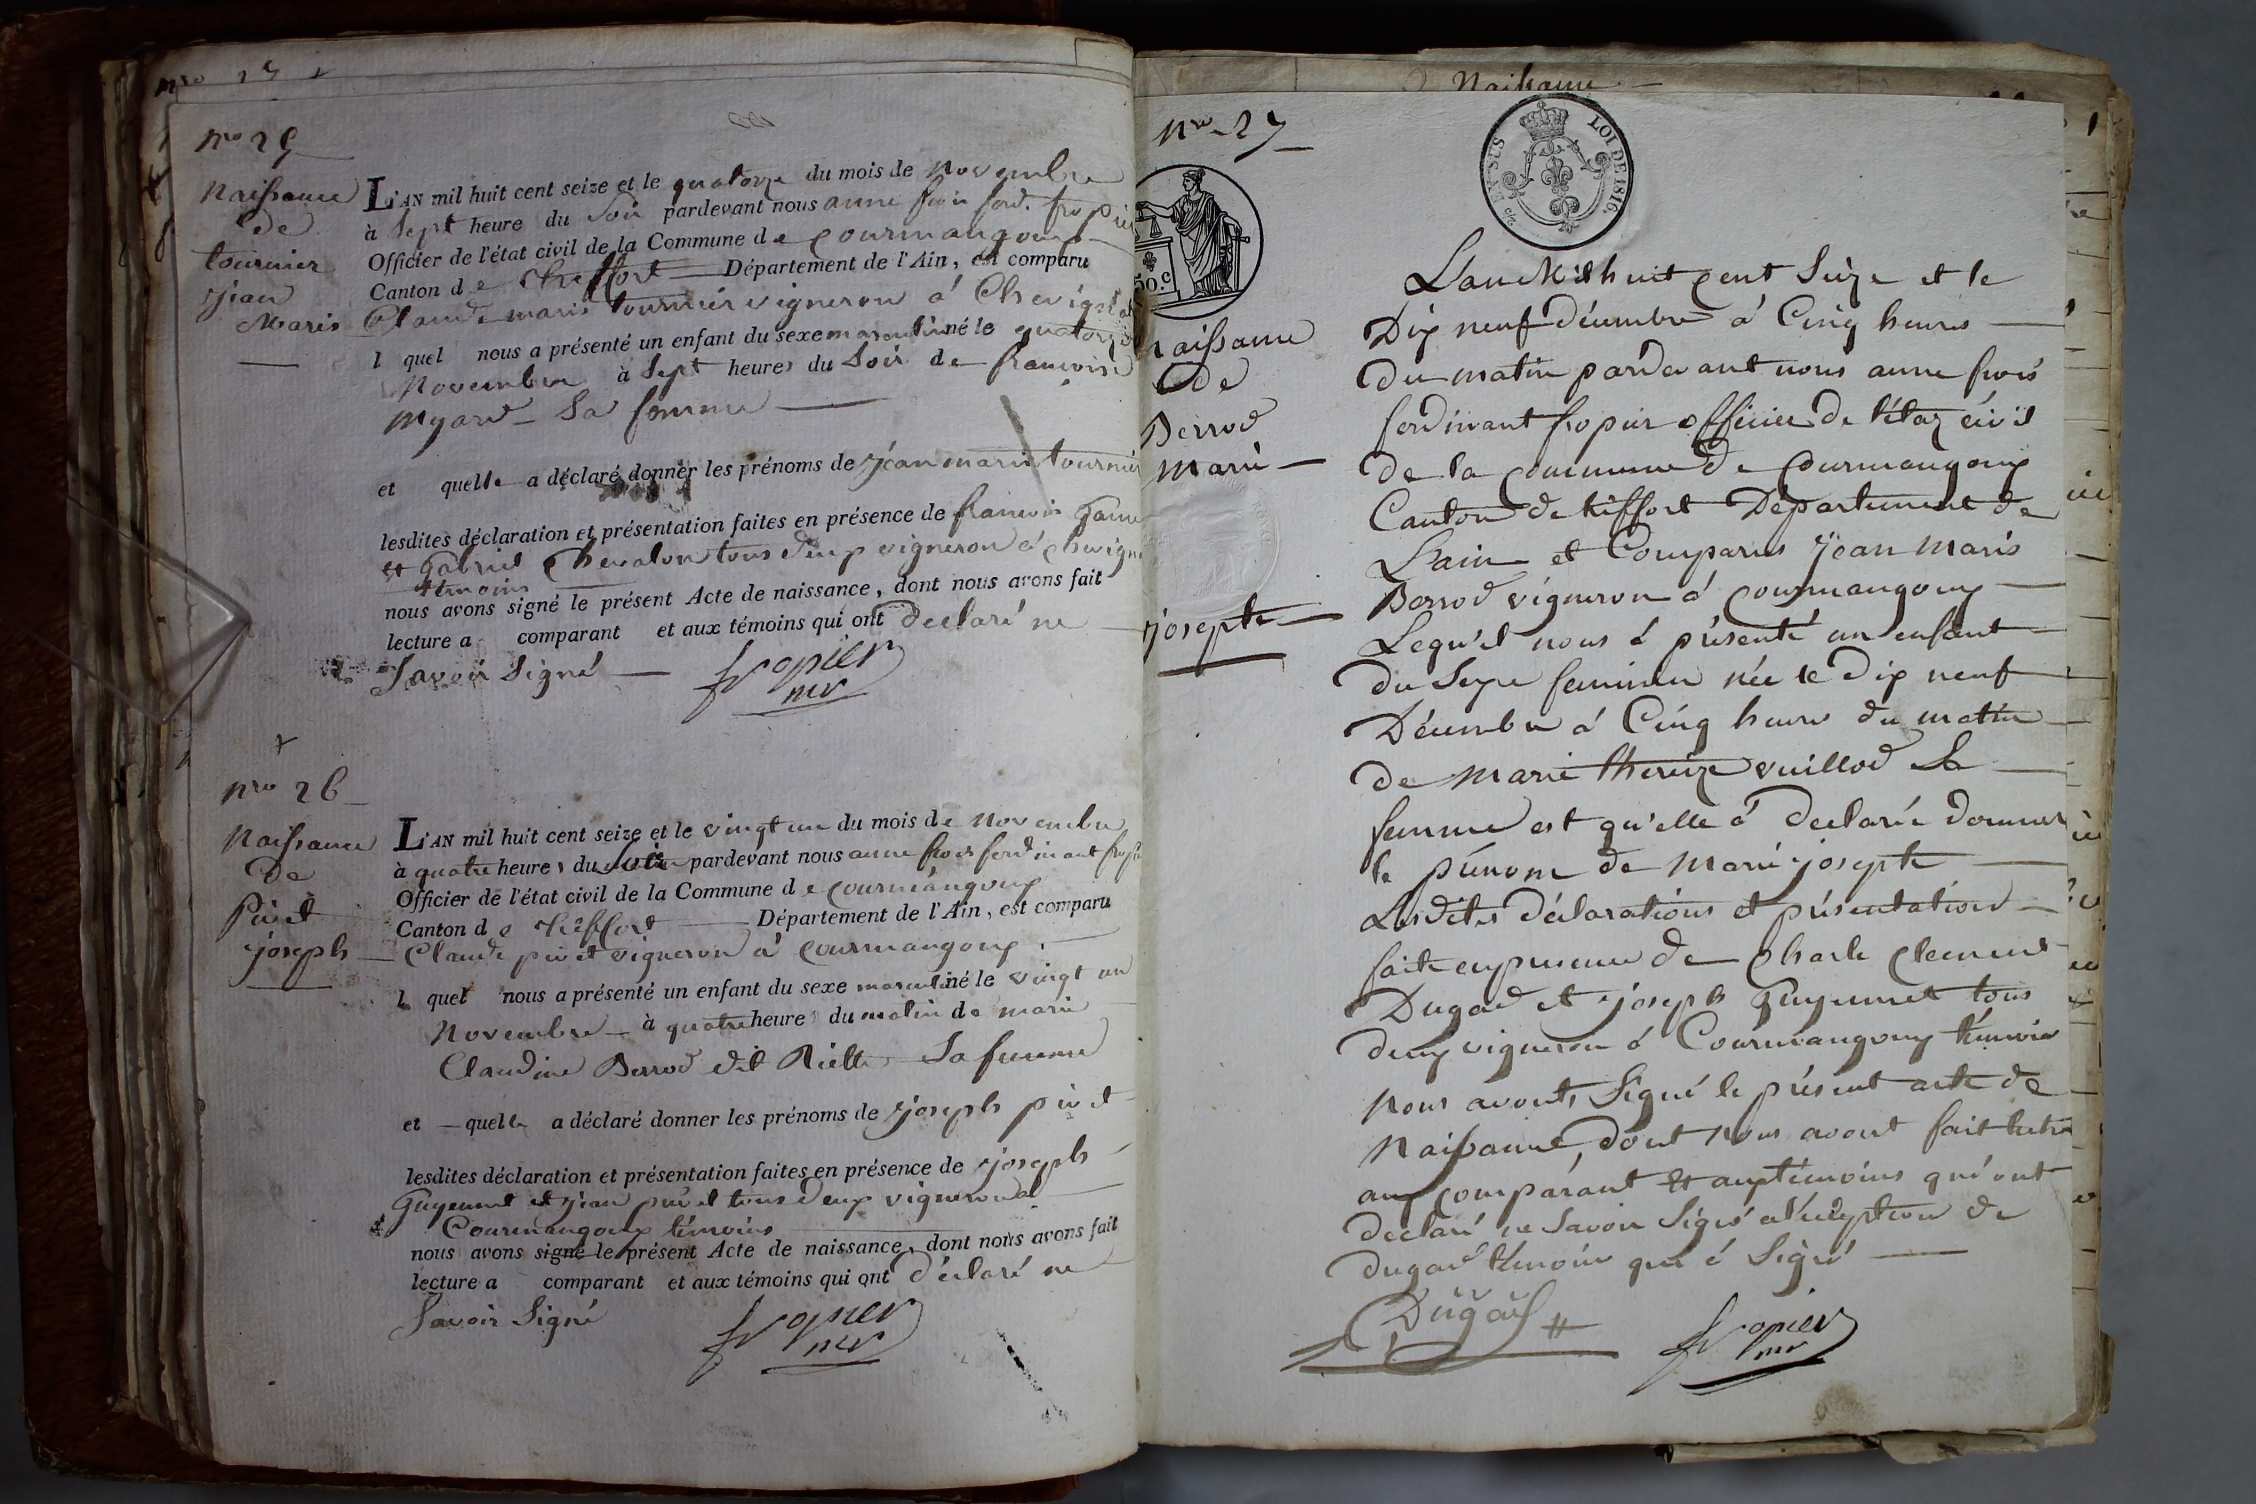 nro 25
Naissance
de
tournier
jean
Marie
L'AN mil huit cent seize et le quatorze du mois de Novembre
à Sept heure du Soir pardevant nous anne frois ferd. fropier
Officier de l'état civil de la Commune de Courmangoux
Canton de Treffort Département de l'Ain, est comparu
Claude marie tournier vigneron á Chevignat
lequel nous a présenté un enfant du sexe masculin né le quatorze
Novembre à Sept heures du Soir de francoise
Myard Sa femme
et quelle a déclaré donner les prénoms de jean marie tournier
lesdites déclaration et présentation faites en présence de francois
et gabriel Chevalon tous deux vigneron á chevign
témoins
nous avons signé le présent Acte de naissance, dont nous avons fait
lecture a comparant et aux témoins qui ont declaré ne
Savoir Signé
fropier
mr
nro 26
Naissance
de
Pivet
joseph
L'AN mil huit cent seize et le vingt un du mois de Novembre
à quatre heures du pardevant nous anne frois ferdinant fropier
Officier de l'état civil de la Commune de Courmangoux
Canton de Treffort Département de l'Ain, est comparu
Claude pivet vigneron á Courmangoux
lequel nous a présenté un enfant du sexe masculin né le vingt un
Novembre à quatre heures du matin de marie
Claudine Berrod dit Riette Sa femme
et quelle a déclaré donner les prénoms de joseph pivet
lesdites déclaration et présentation faites en présence de joseph
Guyennet et jean pivet tous deux vigneron á
Courmangoux témoins
nous avons signé le présent Acte de naissance, dont nous avons fait
lecture a comparant et aux témoins qui ont déclaré ne
Savoir Signé
fropier
mr
Naissance
nro 27
EN SUS
LOI DE 1816.
50.c
Naissance
de
Berrod
Marie
josepte
L'an Mil huit cent Seize et le
Dix neuf décembre á Cinq heures
du matin pardevant nous anne frois
ferdinant fropier officier de l'état civil
de la Commune de Courmangoux
Canton de treffort Département de
L'ain et Comparus jean marie
Berrod vigneron á Courmangoux
Lequ'el nous á présenté un enfant
du Sexe feminin née le dix neuf
Décembre á Cinq heures du matin
de marie thereize vuillod Sa
femme est qu'elle á declaré donner
le prénom de marie josepte
Lesdites déclarations et présentation
faite en presence de Charle Clement
Dugad et joseph Guyennet tous
deux vigneron á Courmangoux témoin
Nous avonts Signé le présent acte de
Naissance, dont Nous avont fait lectre
aux comparant et aux témoins qui ont
declaré ne Savoir Signé á l'éxeption de
dugad témoin qui á Signé
Dugad
fropier
mr